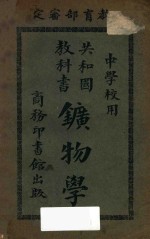 教育部審定
中學校用
共和國
教科書
鑛物學
商務印書館出版